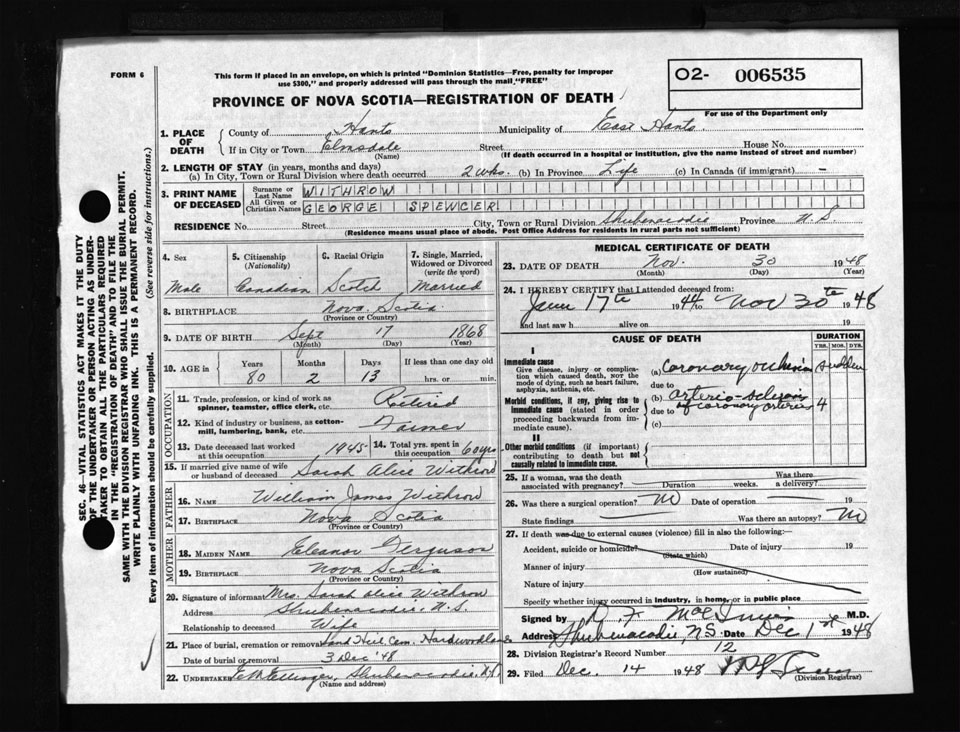 FORM 6
This form if placed in an envelope, on which is printed "Dominion Statistics—Free, penalty for improper
use $300," and properly addressed will pass through the mail "FREE"
O2- 006535
For use of the Department only
PROVINCE OF NOVA SCOTIA—REGISTRATION OF DEATH
1. PLACE OF DEATH
County of Hants Municipality of East Hants
If in City or Town Elmsdale Street House No.
(Name) (If death occurred in a hospital or institution, give the name instead of street and number)
2. LENGTH OF STAY (in years, months and days)
(a) In City, Town or Rural Division where death occurred 2 wks. (b) In Province Life (c) In Canada (if immigrant) —
3. PRINT NAME OF DECEASED
Surname or Last Name WITHROW
All Given or Christian Names GEORGE SPENCER
RESIDENCE No. Street City, Town or Rural Division Shubenacadie Province N S
(Residence means usual place of abode. Post Office Address for residents in rural parts not sufficient)
4. Sex
Male
5. Citizenship
(Nationality)
Canadian
6. Racial Origin
Scotch
7. Single, Married,
Widowed or Divorced
(write the word)
Married
8. BIRTHPLACE Nova Scotia
(Province or Country)
9. DATE OF BIRTH Sept 17 1868
(Month) (Day) (Year)
10. AGE in Years Months Days If less than one day old
80 2 13 hrs. or min.
OCCUPATION
11. Trade, profession, or kind of work as
spinner, teamster, office clerk, etc. Retired
12. Kind of industry or business, as cotton-
mill, lumbering, bank, etc. Farmer
13. Date deceased last worked
at this occupation 1945
14. Total yrs. spent in
this occupation 60 yrs
15. If married give name of wife
or husband of deceased Sarah Alice Withrow
FATHER
16. NAME William James Withrow
17. BIRTHPLACE Nova Scotia
(Province or Country)
MOTHER
18. MAIDEN NAME Eleanor Ferguson
19. BIRTHPLACE Nova Scotia
(Province or Country)
20. Signature of informant Mrs. Sarah Alice Withrow
Address Shubenacadie, N.S.
Relationship to deceased Wife
21. Place of burial, cremation or removal Sand Hill Cem. Hardwoodlands
Date of burial or removal 3 Dec '48
22. UNDERTAKER Shubenacadie, N.S.
(Name and address)
MEDICAL CERTIFICATE OF DEATH
23. DATE OF DEATH Nov. 30 1948
(Month) (Day) (Year)
24. I HEREBY CERTIFY that I attended deceased from:
17th 1944 to Nov 30th 1948
And last saw h alive on 19
CAUSE OF DEATH
DURATION
YRS. MOS. DYS.
I
Immediate cause
Give disease, injury or complica-
tion which caused death, not the
mode of dying, such as heart failure,
asphyxia, asthenia, etc.
(a) Coronary occlusion sudden
due to
Morbid conditions, if any, giving rise to
immediate cause (stated in order
proceeding backwards from im-
mediate cause).
(b) arterio-sclerosis
due to of coronary arteries 4
(c)
II
Other morbid conditions (if important)
contributing to death but not
causally related to immediate cause.
25. If a woman, was the death
associated with pregnancy? Duration weeks. Was there
a delivery?
26. Was there a surgical operation? No Date of operation 19
State findings Was there an autopsy? No
27. If death was due to external causes (violence) fill in also the following:
Accident, suicide or homicide? Date of injury 19
(State which)
Manner of injury
(How sustained)
Nature of injury
Specify whether injury occurred in industry, in home, or in public place
Signed by M.D.
Address Shubenacadie, N.S. Date Dec 1st 1948
28. Division Registrar's Record Number 12
29. Filed Dec. 14 1948
(Division Registrar)
SEC. 46—VITAL STATISTICS ACT MAKES IT THE DUTY
OF THE UNDERTAKER OR PERSON ACTING AS UNDER-
TAKER TO OBTAIN ALL THE PARTICULARS REQUIRED
IN THE "REGISTRATION OF DEATH" AND TO FILE THE
SAME WITH THE DIVISION REGISTRAR WHO SHALL ISSUE THE BURIAL PERMIT.
WRITE PLAINLY WITH UNFADING INK. THIS IS A PERMANENT RECORD.
Every item of information should be carefully supplied. (See reverse side for instructions.)